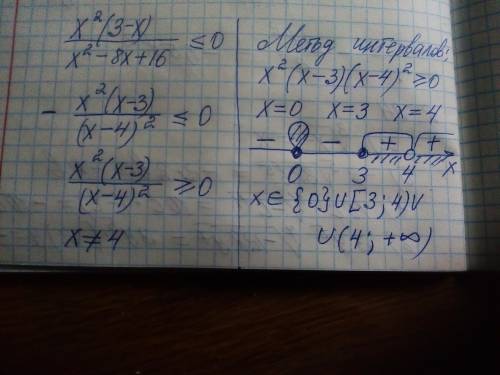 x²(3-x)
x²-8x+16 ≤0
- x²(x-3)
(x-4)² ≤0
x²(x-3)
(x-4)² ≥0
x≠4
Метод интервалов:
x²(x-3)(x-4)²≥0
x=0 x=3 x=4
- - + +
0 3 4 x
x∈{0}∪[3;4)∪
∪(4;+∞)